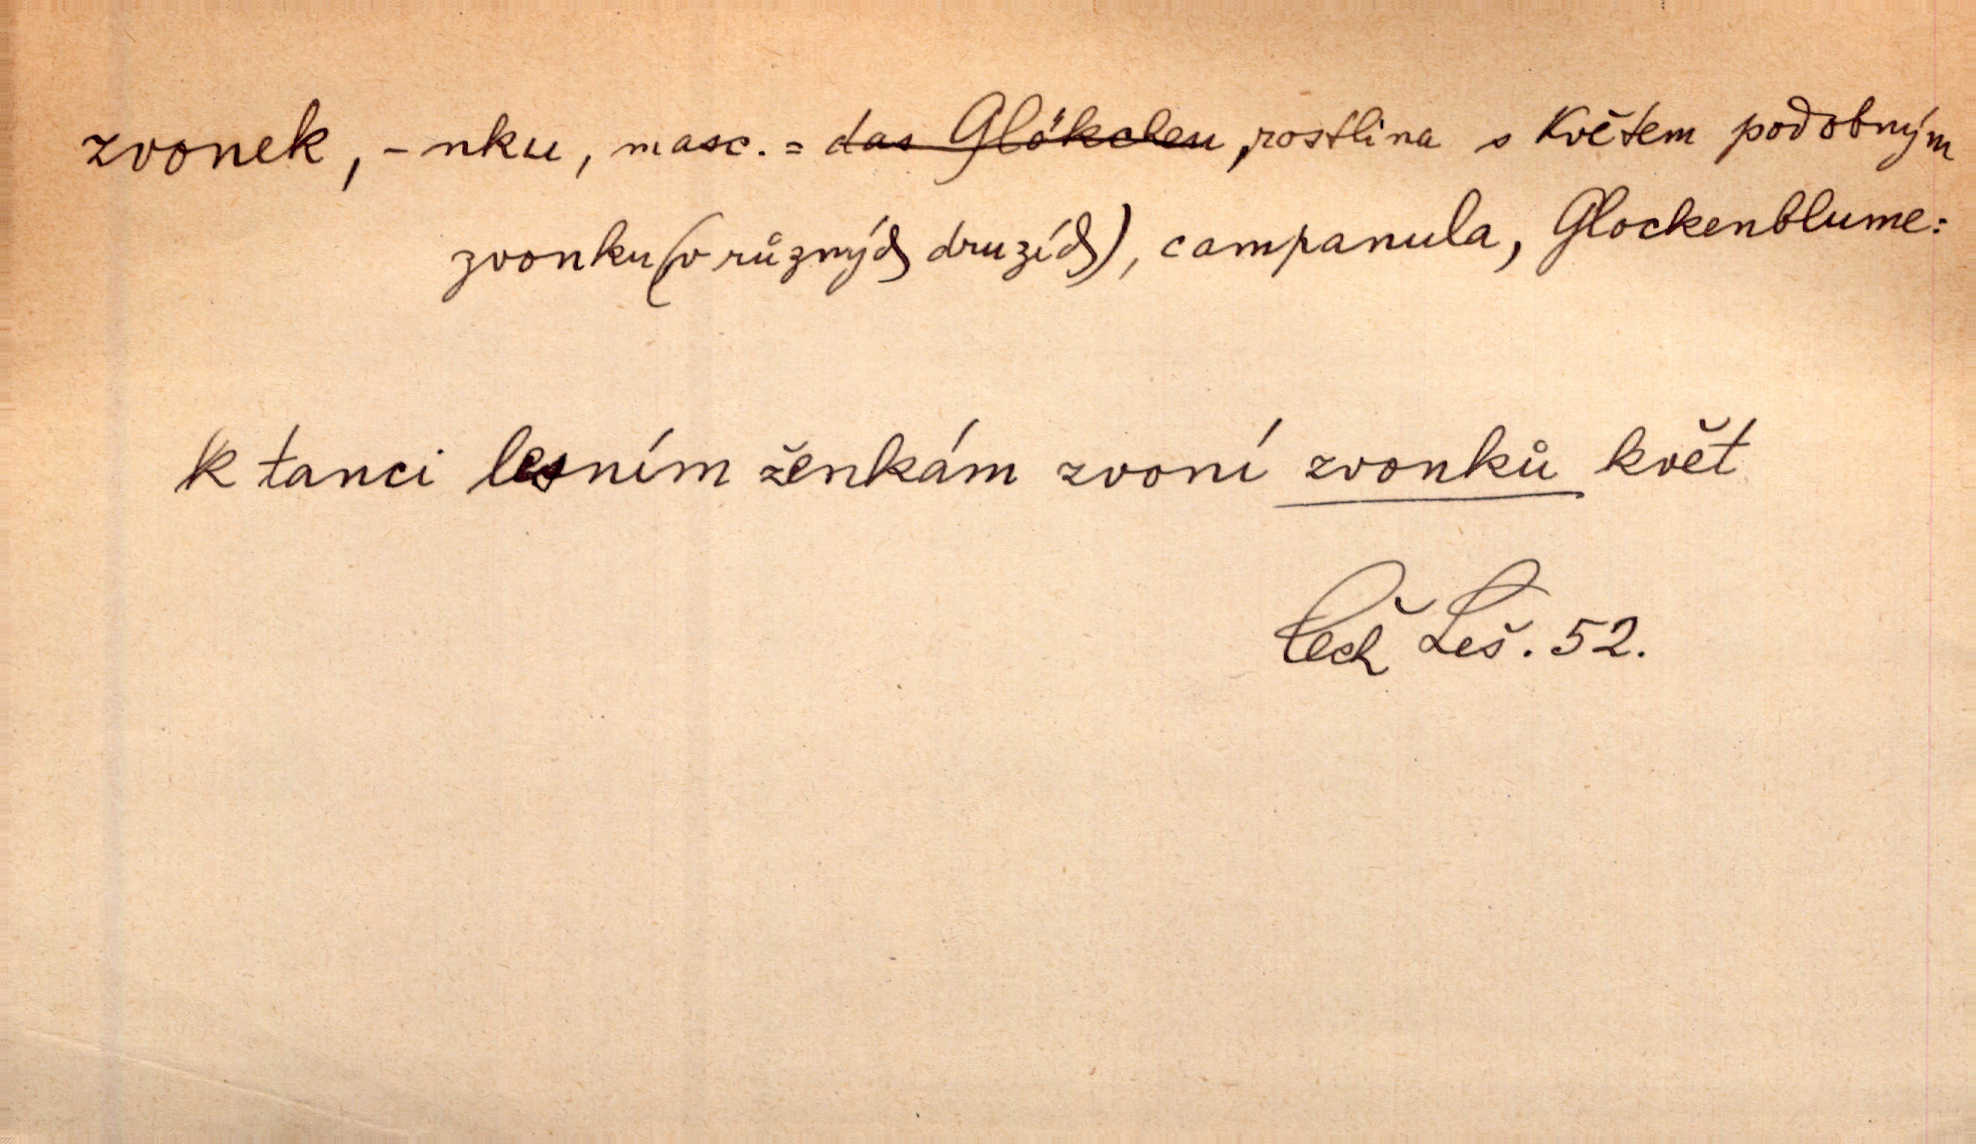 zvonek, -nku, masc. = das Glökclen, rostlina s květem podobným
zvonku (v různých druzích), campanula, Glockenblume:
K tanci lesním ženkám zvoní zvonků květ
Čech Leš. 52.